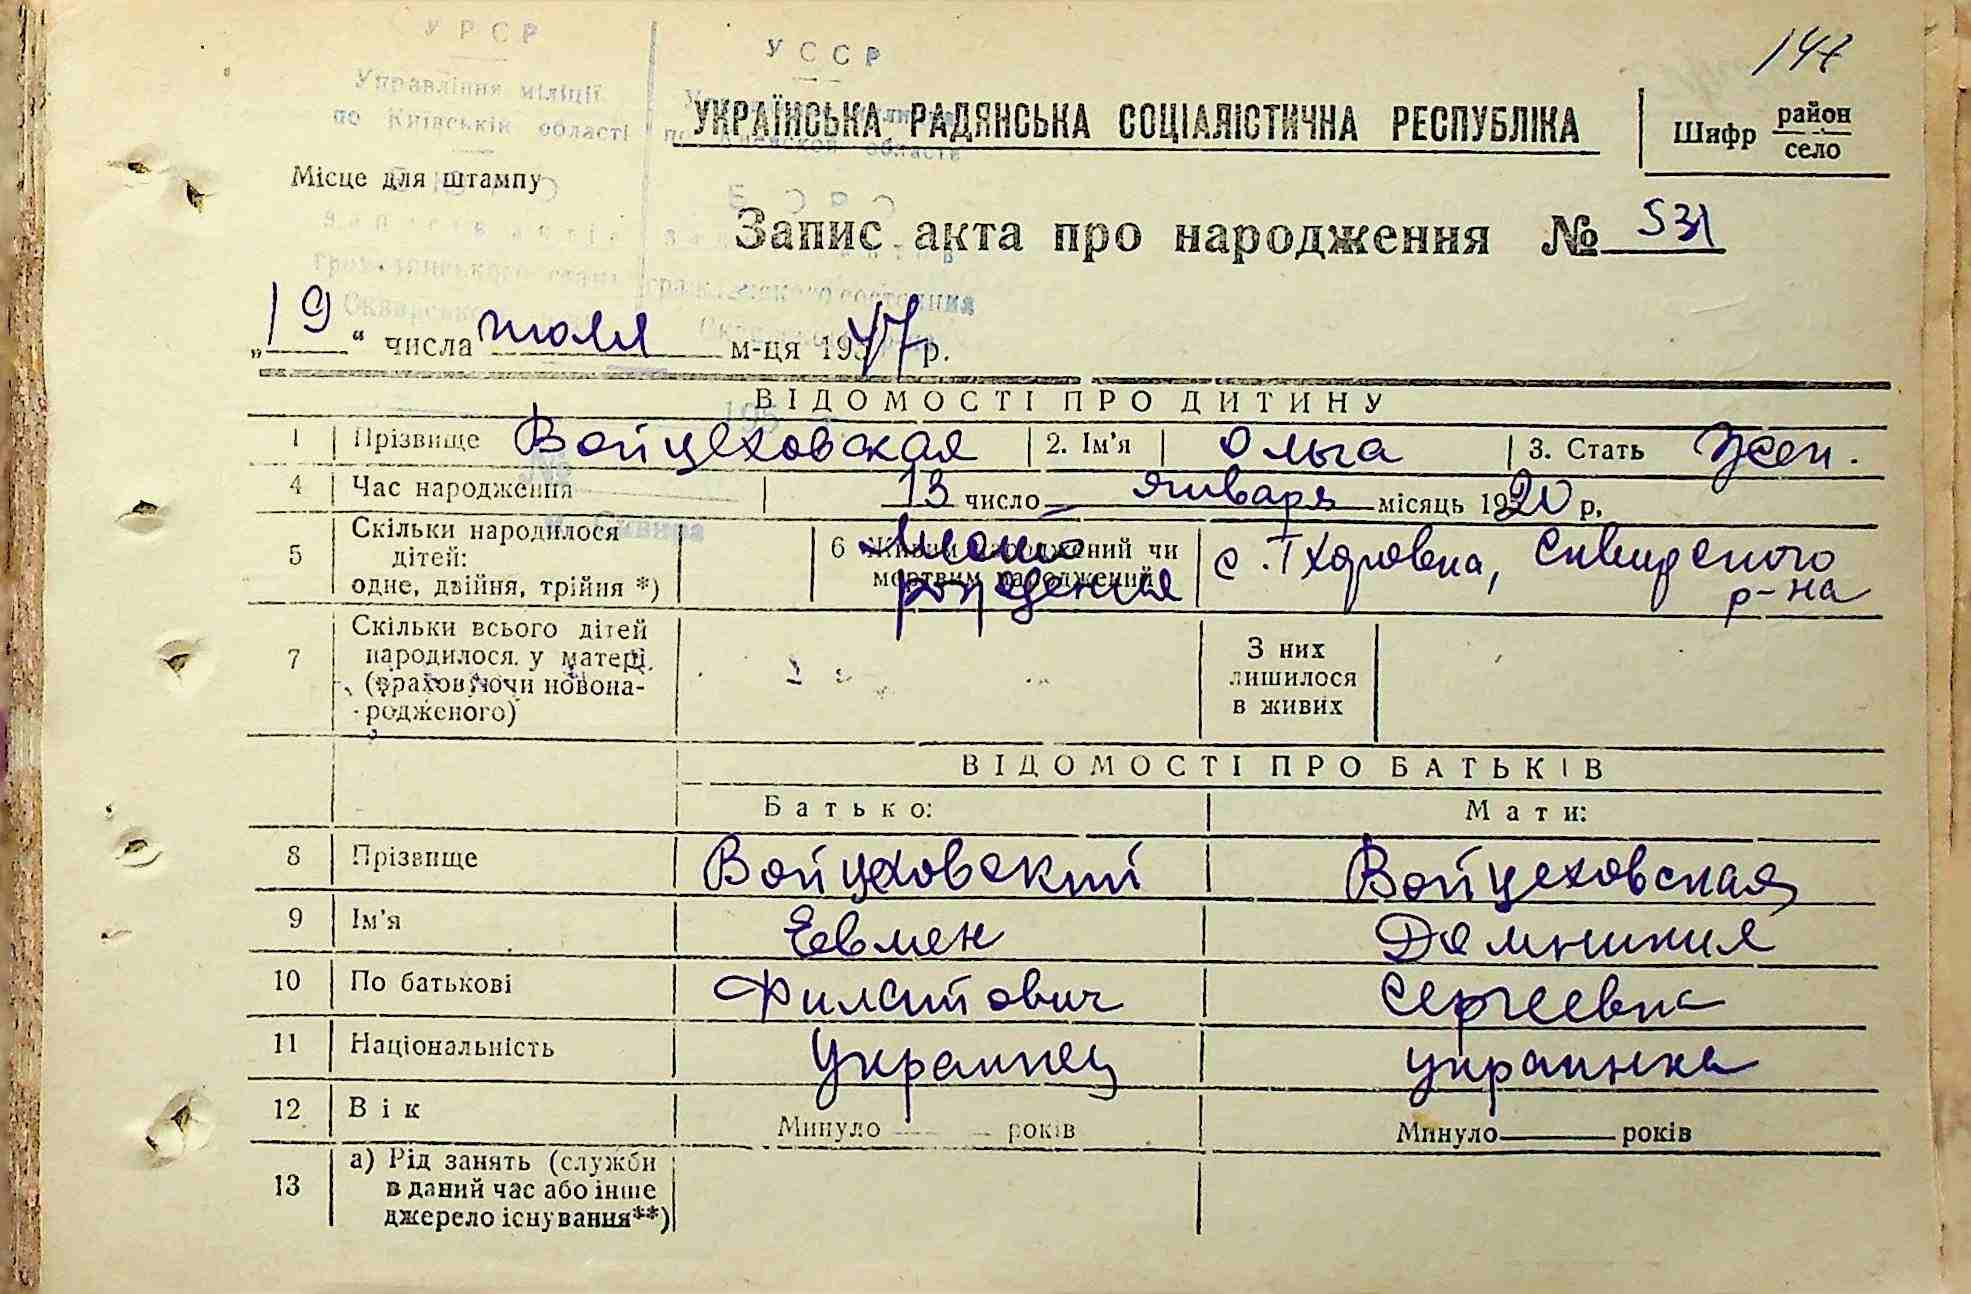 147
У Р С Р
У С С Р
Управління міліції
по Київській області
УКРАЇНСЬКА РАДЯНСЬКА СОЦІАЛІСТИЧНА РЕСПУБЛІКА
Шифр район
село
Місце для штампу
Запис акта про народження № 531
„19“ числа июля м-ця 1957 р.
ВІДОМОСТІ ПРО ДИТИНУ
1 Прізвище Войцеховская 2. Ім'я Ольга 3. Стать жен.
4 Час народження 13 число января місяць 1920 р.
5 Скільки народилося дітей: одне, двійня, трійня *)
6 Живим народжений чи мертвим народжений
Место рождения
с. Тхоровка, Сквирского р-на
7 Скільки всього дітей народилося у матері (враховуючи новонародженого)
З них лишилося в живих
ВІДОМОСТІ ПРО БАТЬКІВ
Батько: Мати:
8 Прізвище Войцеховский Войцеховская
9 Ім'я Евмен Домникия
10 По батькові Филиппович Сергеевна
11 Національність Украинец украинка
12 Вік Минуло років Минуло років
13 а) Рід занять (служби в даний час або інше джерело існування**)